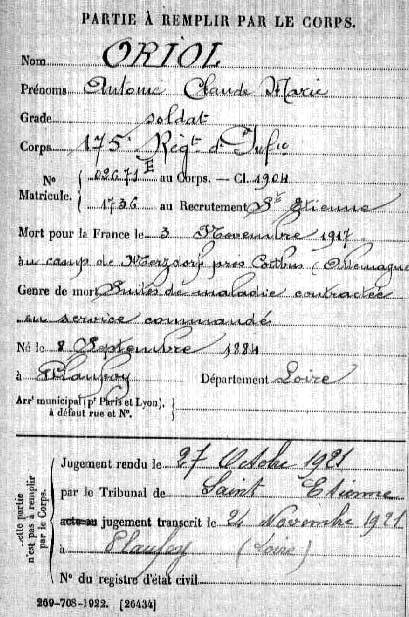 PARTIE À REMPLIR PAR LE CORPS.
Nom ORIOL
Prénoms Antoine Claude Marie
Grade soldat
Corps 175e Régt d'Infie
No Matricule. 02671 E au Corps. — Cl. 1904
1736 au Recrutement St Etienne
Mort pour la France le 3 Novembre 1917
au camp de Merzdorf près Cottbus (Allemagne
Genre de mort Suites de maladie contractée
en service commandé
Né le 8 Septembre 1884
à Planfoy Département Loire
Arrt municipal (pr Paris et Lyon),
à défaut rue et No.
Cette partie
n'est pas à remplir
par le Corps.
Jugement rendu le 27 Octobre 1921
par le Tribunal de Saint Etienne
acte ou jugement transcrit le 24 Novembre 1921
à Planfoy (Loire)
No du registre d'état civil
269-708-1922. [26434]